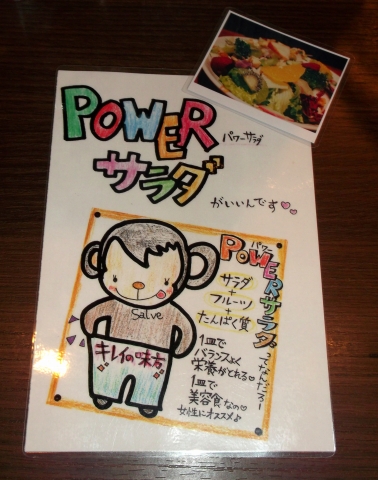 POWER
パワーサラダ
サラダ
がいいんです♡♡
パワー
POWERサラダってなんだろー
サラダ
+
フルーツ
+
たんぱく質
1皿で
バランスよく
栄養がとれる♡
1皿で
美容食なの♡
女性にオススメ♪
Salve
キレイの味方